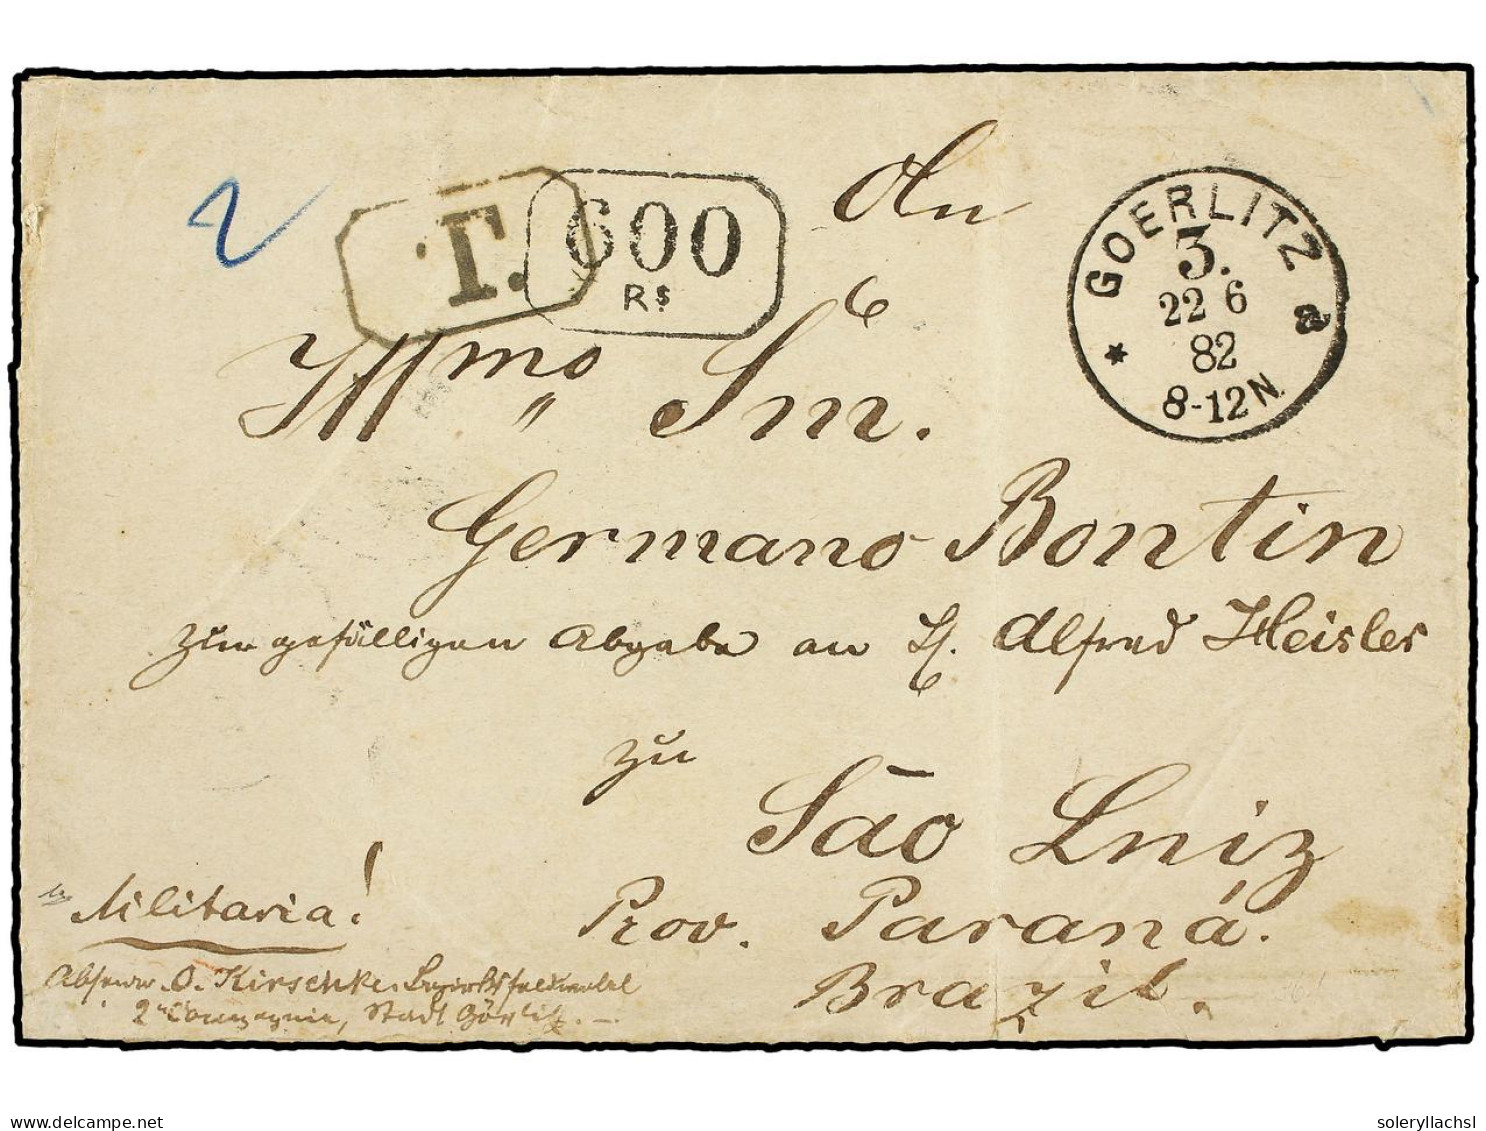 2
T.
600
Rs
GOERLITZ
3.
22 6
82
8-12N.
* a
An
Illmo „ Snr.
Germano Bontin
zur gefälligen Abgabe an H. Alfred Heisler
zu
São Luiz
Prov. Paraná.
Brazil.
Militaria!
Absender O. Kirschke. Bezirksfeldwebel
2te Compagnie, Stadt Görlitz. —
delcampe.net
soleryllachsl